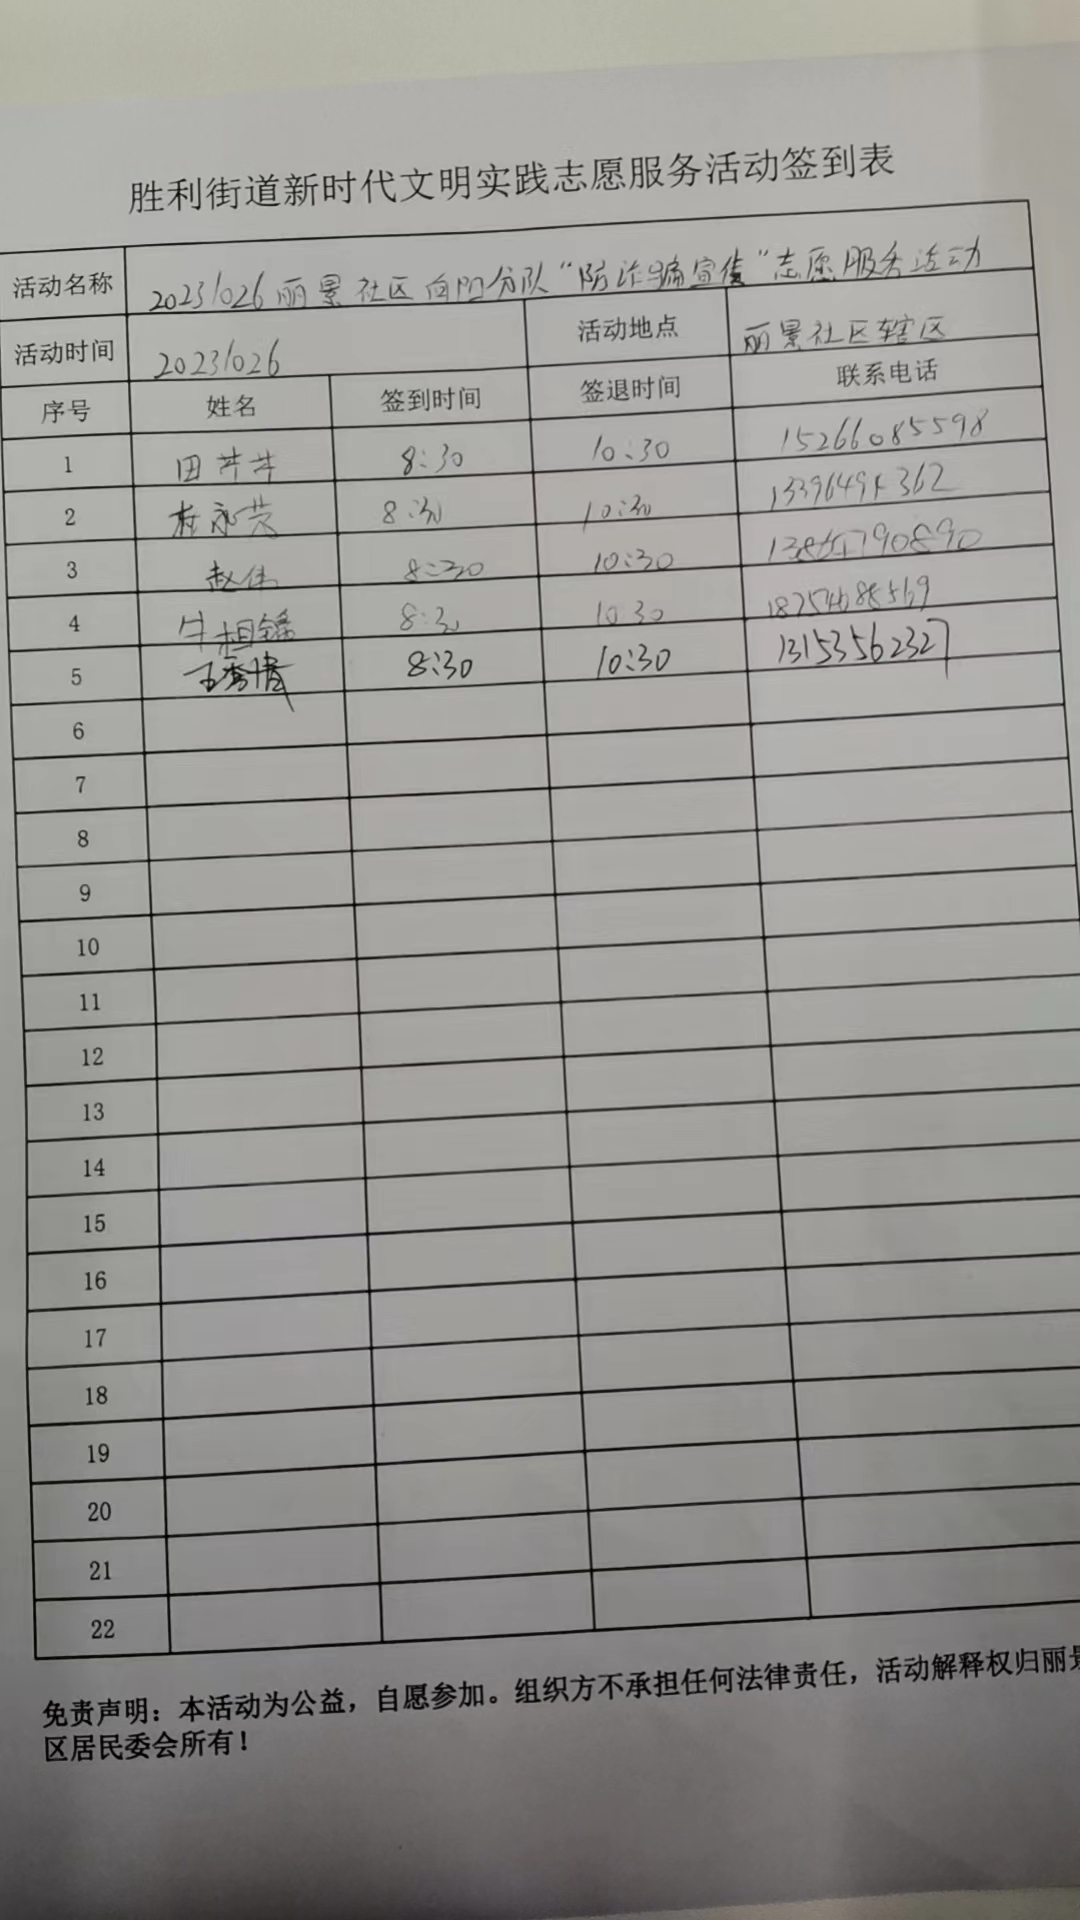 胜利街道新时代文明实践志愿服务活动签到表
活动名称 20231026丽景社区向阳分队“防诈骗宣传”志愿服务活动
活动时间 20231026 活动地点 丽景社区辖区
序号 姓名 签到时间 签退时间 联系电话
1 田芹芹 8:30 10:30 15266085598
2 8:30 10:30
3 赵伟 8:30 10:30 13864790890
4 牛相 8:30 10:30
5 王秀倩 8:30 10:30 13153562327
6
7
8
9
10
11
12
13
14
15
16
17
18
19
20
21
22
免责声明：本活动为公益，自愿参加。组织方不承担任何法律责任，活动解释权归丽景
区居民委会所有！